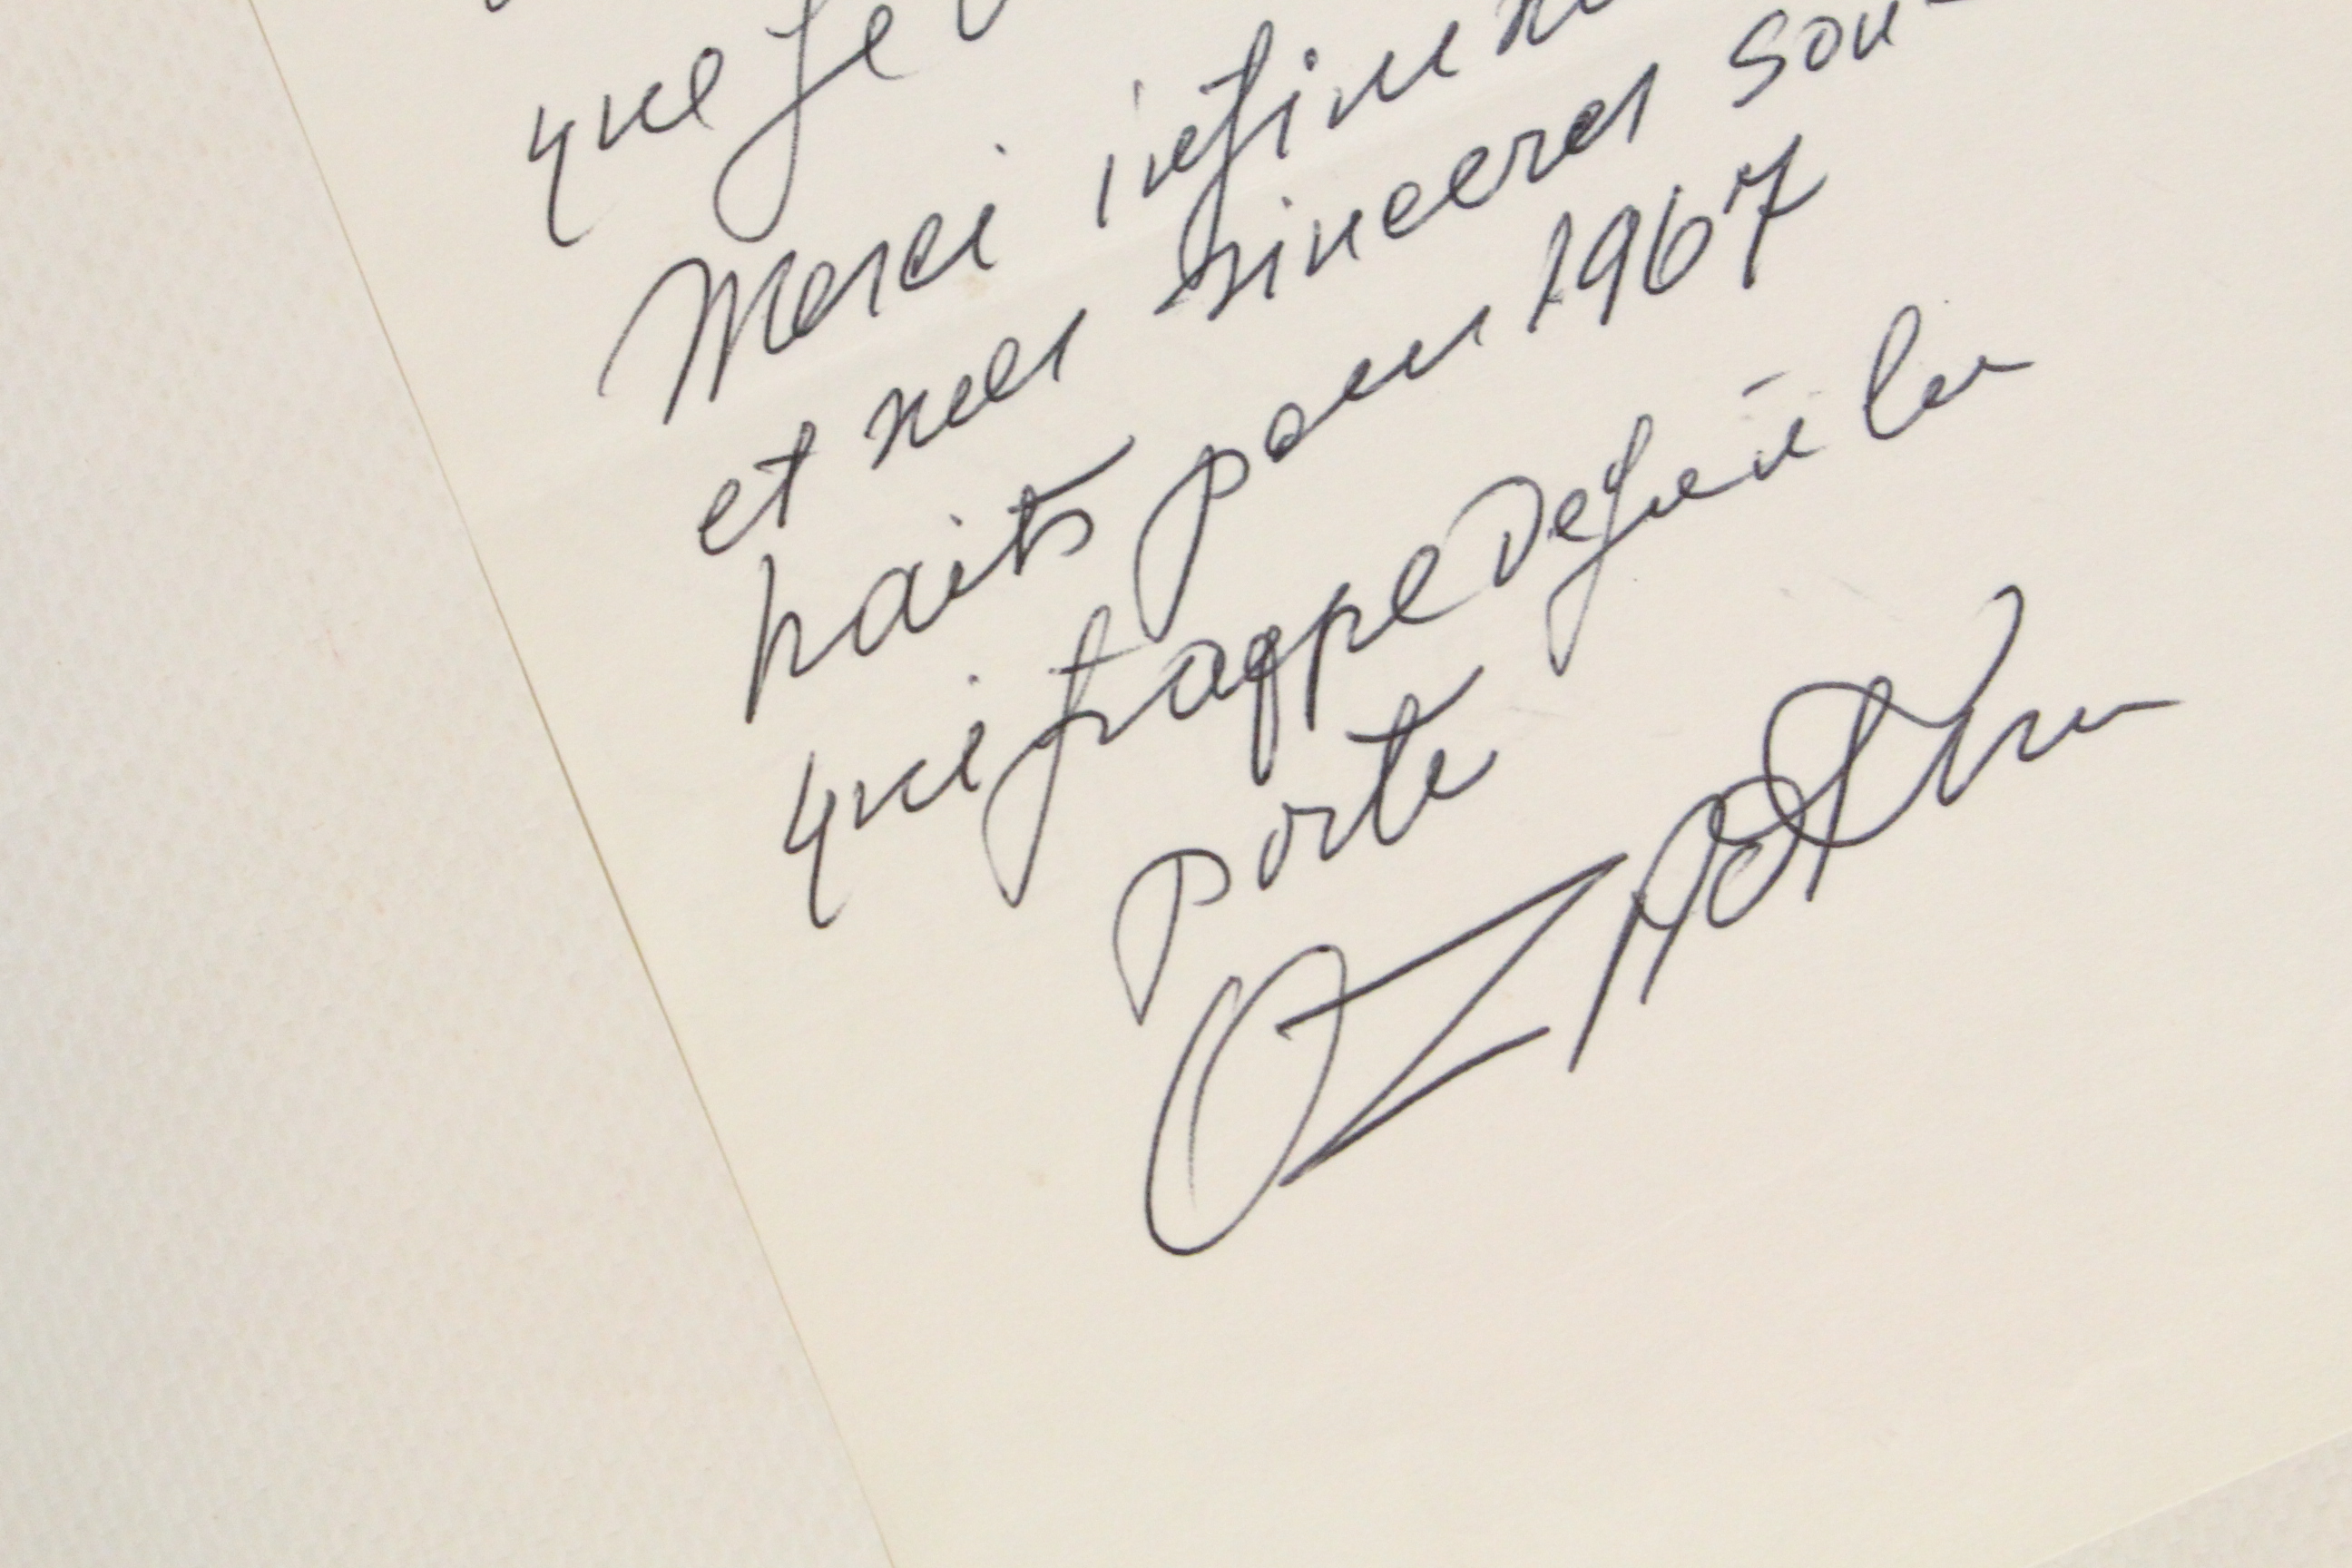 que je
Merci infinime
et mes sinceres sou-
haits pour 1967
qui frappe Dejà à la
porte
O Zadkine